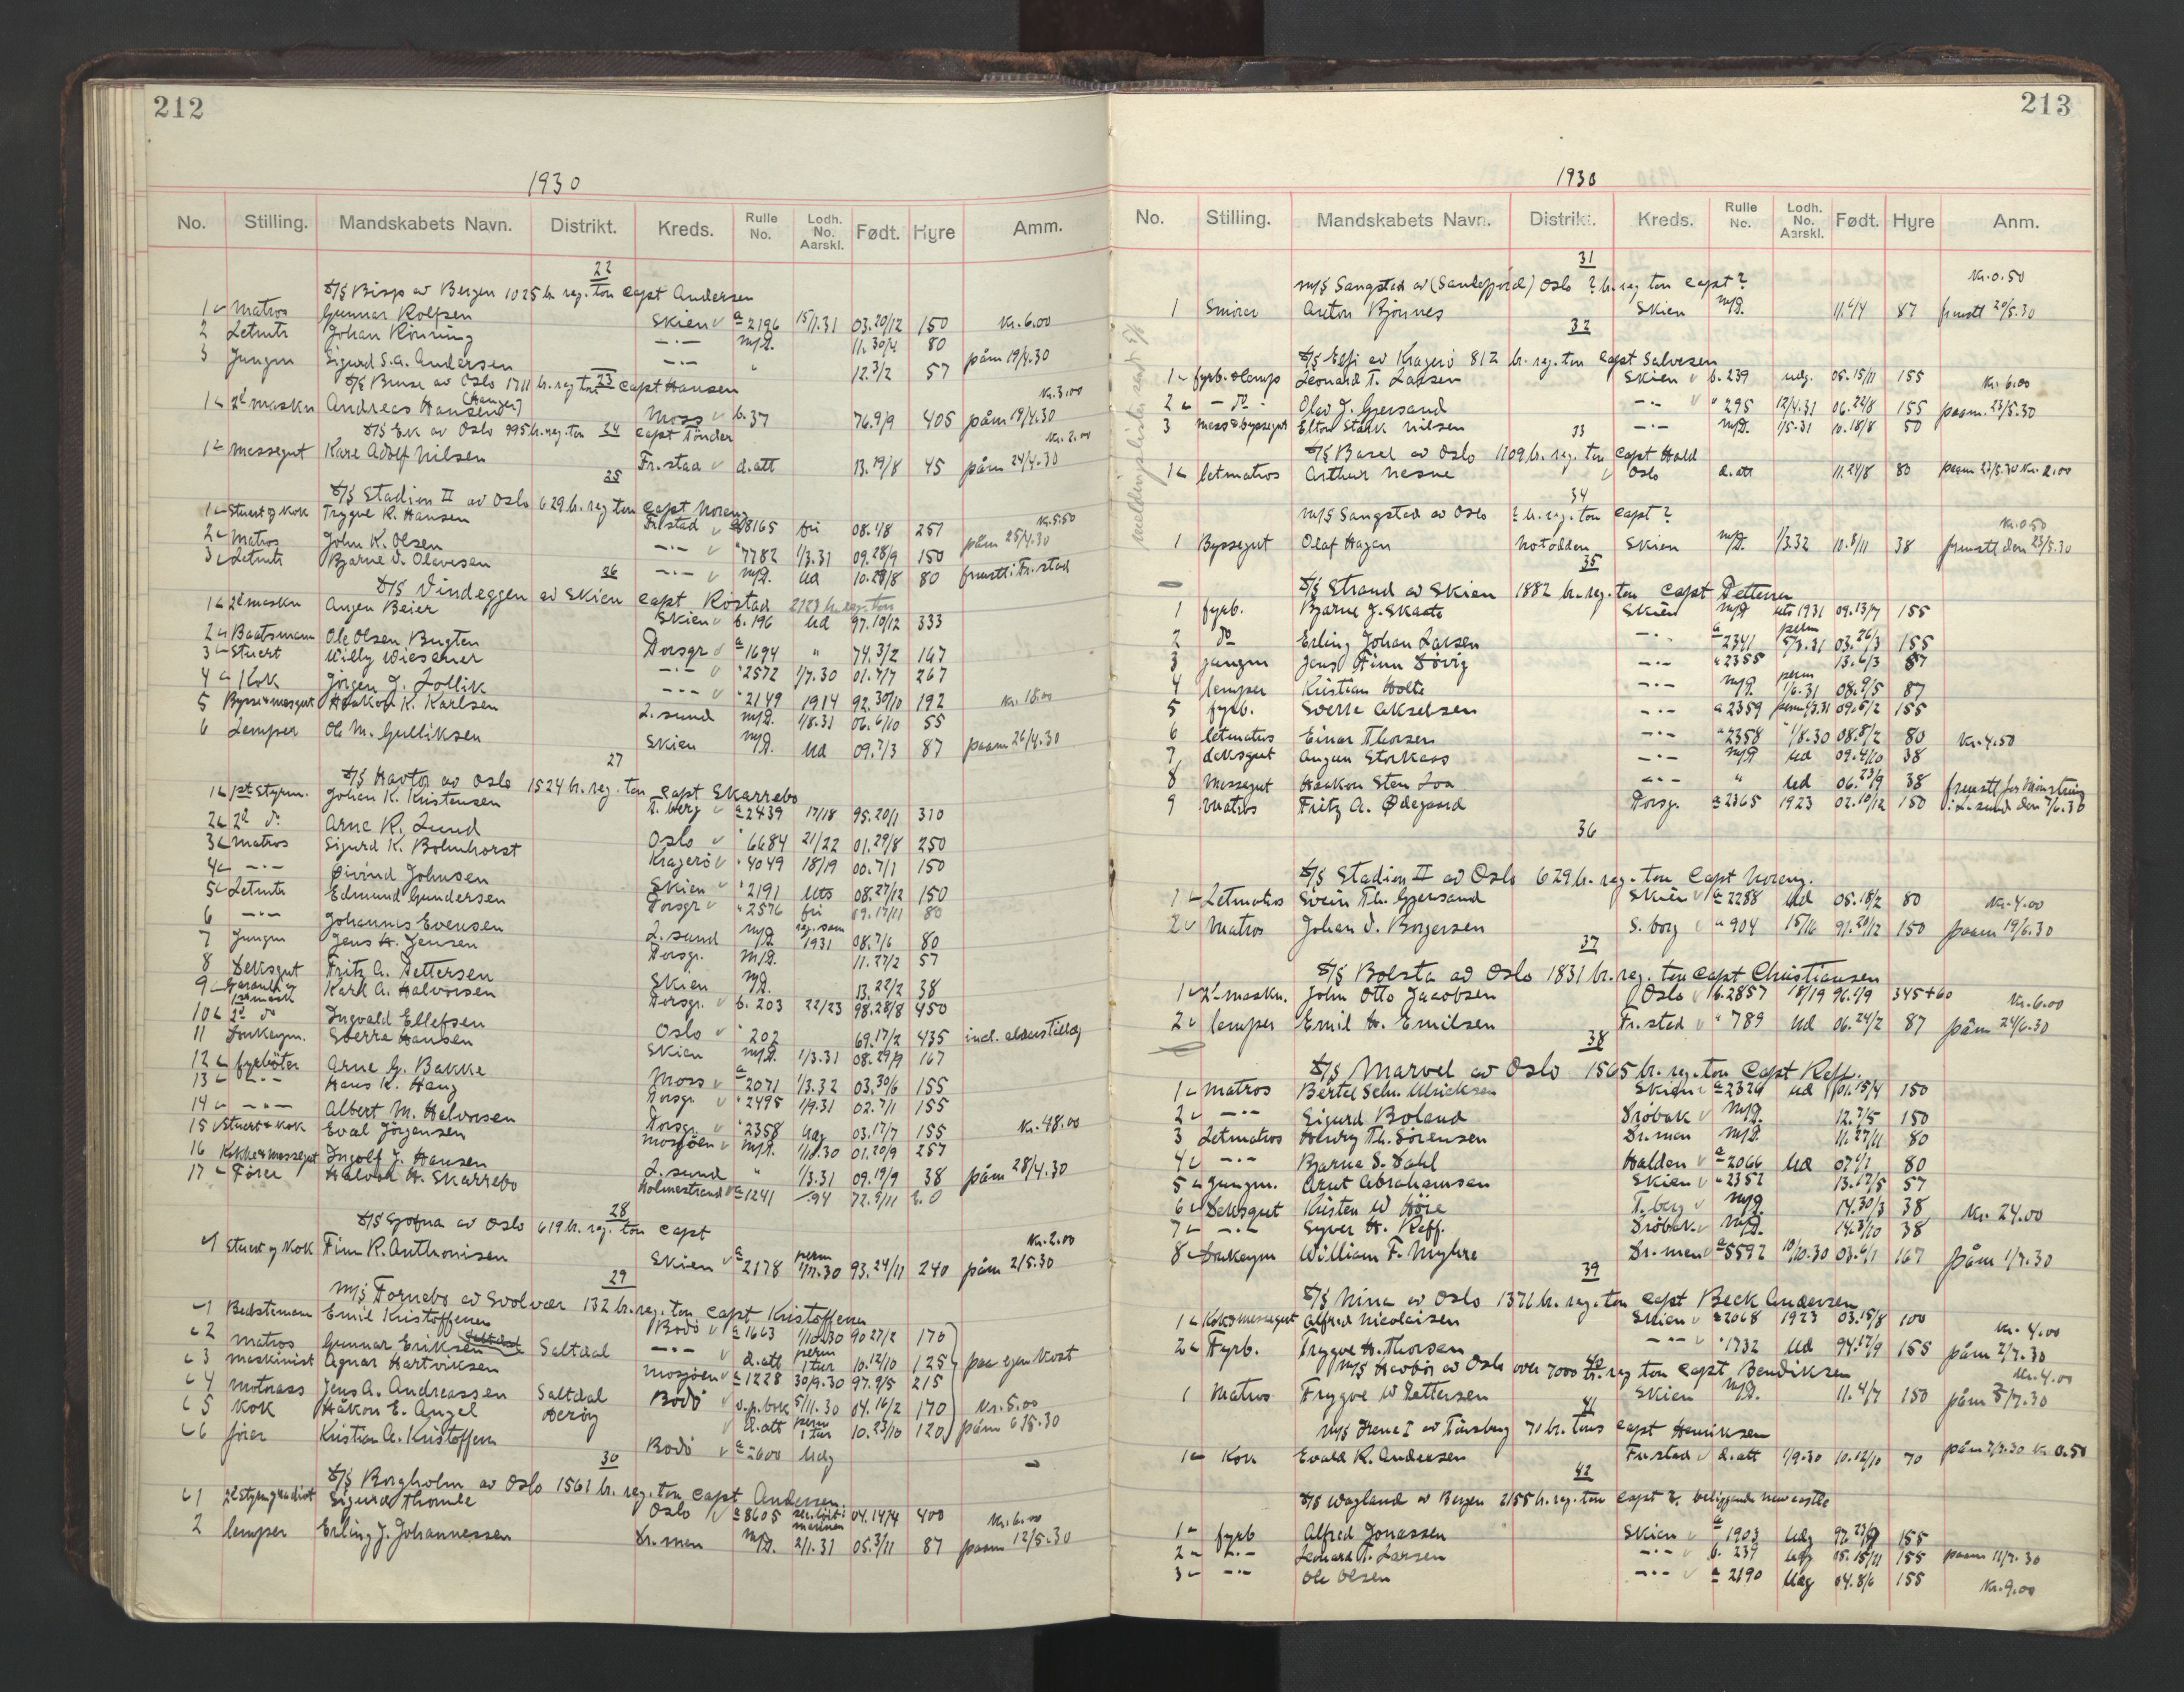 212
1930
No. Stilling. Mandskabets Navn. Distrikt. Kreds. Rulle No. Lodh. No. Aarskl. Født. Hyre Amm.
22
D/S Bisp av Bergen 1025 br. reg. ton Capt Andersen
1 Matros Gunnar Rolfsen Skien a 2196 15/1.31 03.20/12 150 Kr. 6.00
2 Letmtr Johan Rönning —·— m/P. 11.30/4 80
3 Jungm Sigurd S.A. Andersen —·— " 12.3/2 57 påm 19/4.30
D/S Bruse av Oslo 1711 br. reg ton 23 Capt Hansen
Kr. 3.00
1 2d maskn Andreas Hansen Moss b. 37 76.9/9 405 påm 19/4.30
D/S Ek av Oslo 995 br. reg ton 24 Capt Tönder
Kr. 2.00
1 Messegut Kåre Adolf Nilsen Fr.stad d.att 13.19/8 45 påm 24/4.30
25
D/S Stadion II av Oslo 629 br. reg ton Capt Noreng
1 Stuert og Kok Trygve R. Hansen Fr.stad 8165 fri 08.1/8 257 Kr. 5.50
2 Matros John K. Olsen —·— " 7782 1/3.31 09.28/9 150 påm 25/4.30
3 Letmtr Bjarne D. Olavesen —·— m/P. Ud 10.28/8 80 frmstt i Fr.stad
26
D/S Vindeggen av Skien Capt Röstad 2723 br. reg. ton
1 2d maskn Augen Beier Skien b. 196 Ud 97.10/12 333
2 Baatsmann Ole Olsen Bugten Porsgr a 1694 " 74.3/2 167
3 Stuert Willy Wiesener —·— " 2572 1/7.30 01.4/7 267
4 Kok Jörgen J. Jollik —·— " 2149 1914 92.30/10 192
5 Bysse & mesgut Haakon K. Karlsen L.sund m/P. 1/8.31 06.6/10 55 Kr. 18.00
6 Lemper Ole M. Gulliksen Skien m/P. Ud 09.7/3 87 paam 26/4.30
27
D/S Havtor av Oslo 1524 br. reg. ton Capt Skarrebo
1 1st Styrm. Johan K. Kristensen T.berg a 2439 17/18 95.20/1 310
2 2d do Arne R. Lund Oslo " 6684 21/22 01.29/8 250
3 Matros Sigurd K. Bolmhorst Kragerö " 4049 18/19 00.7/1 150
4 —·— Öivind Johnsen Skien " 2191 Uts 08.27/12 150
5 Letmtr Edmund Gundersen Porsgr " 2576 fri 09.17/11 80
6 —·— Johannes Evensen L.sund m/P. reg. som 1931 08.7/6 80
7 Jungm Jens H. Jensen Porsgr. m/P. 11.27/2 57
8 Deksgut Fritz A. Pettersen Skien m/P. 13.22/2 38
9 Garanti og 1st mask Karl A. Halvorsen Porsgr. b. 203 22/23 98.28/8 450
10 2d do Ingvald Ellefsen Oslo " 202 69.17/2 435 incl. alderstillæg
11 Donkeym. Sverre Hansen Skien m/P. 1/3.31 08.29/9 167
12 fyrböter Arne G. Bakke Moss a 2071 1/3.32 03.30/6 155
13 —·— Hans K. Haug Porsgr " 2495 1/9.31 02.7/1 155
14 —·— Albert M. Halvorsen Porsgr " 2358 Udg 03.17/7 155 Kr. 48.00
15 Stuert & Kok Eval Jörgensen Mosjöen m/P. 1/10.30 01.20/9 257
16 Kokke & messegut Ingolf J. Hansen L.sund " 1/3.31 09.19/9 38 påm 28/4.30
17 Förer Halvor H. Skarrebo Holmestrand a 1241 94 72.9/11 h. 0
28
D/S Gjofna av Oslo 619 br. reg. ton Capt
Kr. 2.00
1 Stuert og Kok Finn R. Anthonisen Skien a 2178 perm 1/7.30 93.24/11 240 påm 2/5.30
29
M/S Fornebo av Svolvær 132 br. reg. ton Capt Kristoffersen
1 Bedstemann Emil Kristoffersen Bodö a 1663 1/10.30 90 27/2 170
2 matros Gunnar Eriksen Saltdal —·— d.att perm 1 tur 10.12/10 125 paa egen kost
3 maskinist Agnar Hartviksen Mosjöen a 1228 30/9.30 97.9/5 215
4 motorass Jens A. Andreassen Saltdal Bodö 5/11.30 04.16/2 170 Kr. 5.00
5 Kok Håkon E. Angel Heröy d.att perm 1 tur 10.23/10 120 påm 6/5.30
6 förer Kristian A. Kristoffersen Bodö a 2600 Udg
30
D/S Borgholm av Oslo 1561 br. reg. ton Capt Andersen.
1 2d styrm & radiot Sigurd Thomle Oslo a 8605 marinen 04.14/4 400 Kr. 6.00
2 lemper Erling J. Johannessen Dr.men m/P. 2/1.31 05.3/11 87 paam 12/5.30
213
1930
No. Stilling. Mandskabets Navn. Distrikt. Kreds. Rulle No. Lodh. No. Aarskl. Født. Hyre Anm.
31
M/S Sangstad av (Sandefjord) Oslo ? br. reg ton Capt ?
Kr. 0.50
1 Smörer Anton Bjönnes Skien m/P. 11.4/4 87 frmstt 20/5.30
32
D/S Elfi av Kragerö 812 br. reg. ton Capt Salvesen
1 fyrb. & lemp Leonard T. Larsen Skien b. 239 Udg. 05.15/11 155 Kr. 6.00
2 — do — Olav J. Gjersand —·— " 295 12/4.31 06.22/8 155 paam. 23/5.30
3 mess & byssegut Elton Stark Nilsen —·— m/P. 1/5.31 10.18/8 50
33
D/S Basel av Oslo 1109 br. reg. ton Capt Hald
1 letmatros Arthur Nesne Oslo d.att 11.24/8 80 paam 23/5.30 Kr. 2.00
34
M/S Sangstad av Oslo ? br. reg. ton Capt ?
Kr. 0.50
1 Byssegut Olaf Hagen Notodden Skien m/P. 1/3.32 10.8/11 38 frmstt den 23/5.30
35
D/S Strand av Skien 1882 br. reg. ton Capt Pettersen
1 fyrb. Bjarne J. Skaate Skien m/P uts 1931 09.13/7 155
2 do Erling Johan Larsen —·— a 2341 perm 5/3.31 03.26/3 155
3 jungm Jens Finn Dövig —·— " 2355 13.6/3 57
4 lemper Kristian Holte —·— m/P. perm 1/6.31 08.9/5 87
5 fyrb. Sverre Akselsen —·— a 2359 perm 1/3.31 09.5/2 155
6 letmatros Einar Thorsen —·— " 2358 1/8.30 08.8/2 80 Kr. 4.50
7 deksgut Augen Storkaas —·— m/P Ud 09.4/10 38
8 Messegut Haakon Sten Loa —·— " Ud 06.23/9 38 frmstt for Mönstring
9 matros Fritz A. Ödegaard Porsgr. a 2365 1923 02.10/12 150 i L.sund den 7/6.30
36
D/S Stadion II av Oslo 629 br. reg. ton Capt Noreng.
1 Letmatros Svein Th. Gjersand Skien a 2288 Ud 05.18/2 80 Kr. 4.00
2 Matros Johan D. Borgersen S.borg " 904 15/16 91.20/12 150 paam 19/6.30
37
D/S Bolsta av Oslo 1831 br. reg. ton Capt Christiansen
1 2d Maskn. John Otto Jacobsen Oslo b. 2857 18/19 96.1/9 345+60 Kr. 6.00
2 lemper Emil H. Emilsen Fr.stad " 789 Ud 06.24/2 87 påm 24/6.30
38
D/S Marvel av Oslo 1565 br. reg. ton Capt Reff.
1 Matros Bertel Selm. Ulricksen Skien a 2326 Ud 01.15/4 150
2 —·— Sigurd Boland Dröbak m/P. 12.7/5 150
3 Letmatros Henry Th. Sörensen Dr.men m/P. 11.27/11 80
4 —·— Bjarne S. Dahl Halden a 2066 Ud 07.1/1 80
5 Jungm. Arnt Abrahamsen Skien " 2352 13.12/5 57
6 Deksgut Kristen W Höre T.berg m/P. 14.30/3 38 Kr. 24.00
7 —·— Syver H. Reff. Dröbak m/P. 14.3/10 38
8 Donkeym William F. Myhre Dr.men a 5592 10/10.30 03.6/1 167 påm 1/7.30
39
D/S Nina av Oslo 1371 br. reg. ton Capt Beck Andersen
1 Kok & messegut Alfred Nicolaisen Skien a 2068 1923 03.15/8 100 Kr. 4.00
2 Fyrb. Trygve H. Thorsen —·— " 1732 Ud 94.17/9 155 påm 2/7.30
40
M/S Havbör av Oslo over 7000 br. reg ton Capt Bendiksen
Kr. 4.00
1 Matros Trygve W Pettersen Skien m/P. 11.4/7 150 påm 5/7.30
41
M/S Irene I av Tönsberg 71 br. tons Capt Henriksen
1 Kok Evald R. Andersen Fr.stad d.att 1/9.30 10.12/10 70 påm 7/7.30 Kr. 0.50
42
D/S Wagland av Bergen 2155 br. reg. ton Capt ?. beliggende Newcastle
1 fyrb Alfred Jonassen Skien a 1903 Udg 155
2 —·— Leonard T. Larsen —·— b. 239 Udg 05.15/11 155 paam 11/7.30
3 —·— Ole Olsen —·— a 2190 Udg 04.8/6 155 Kr. 9.00